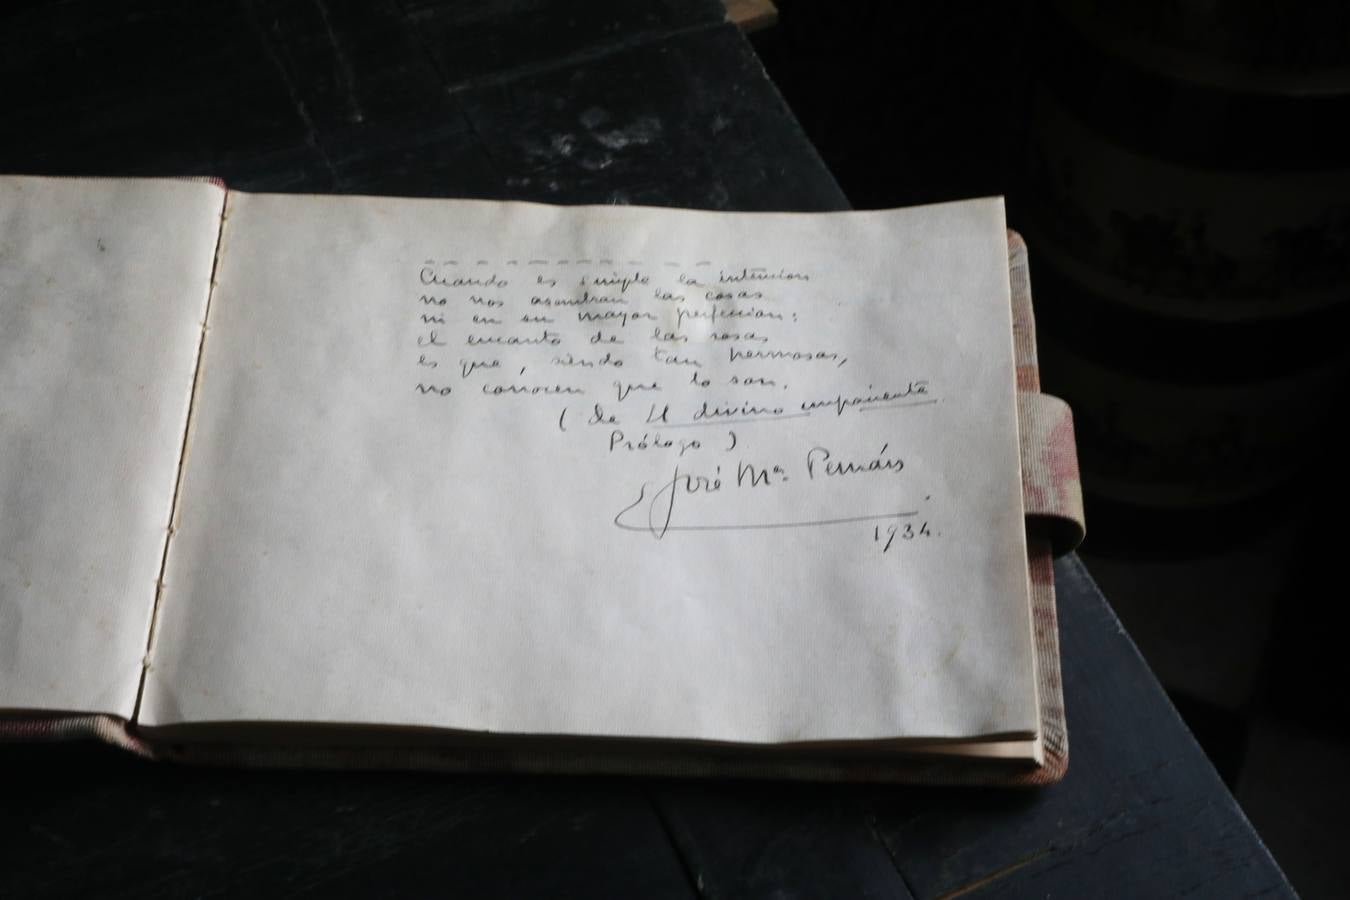 Cuando es simple la intención
no nos asombran las cosas
ni en su mayor perfección:
el encanto de las rosas
es que, siendo tan hermosas,
no conocen que lo son.
(De El divino impaciente.
Prólogo)
José Mª Pemán
1934.